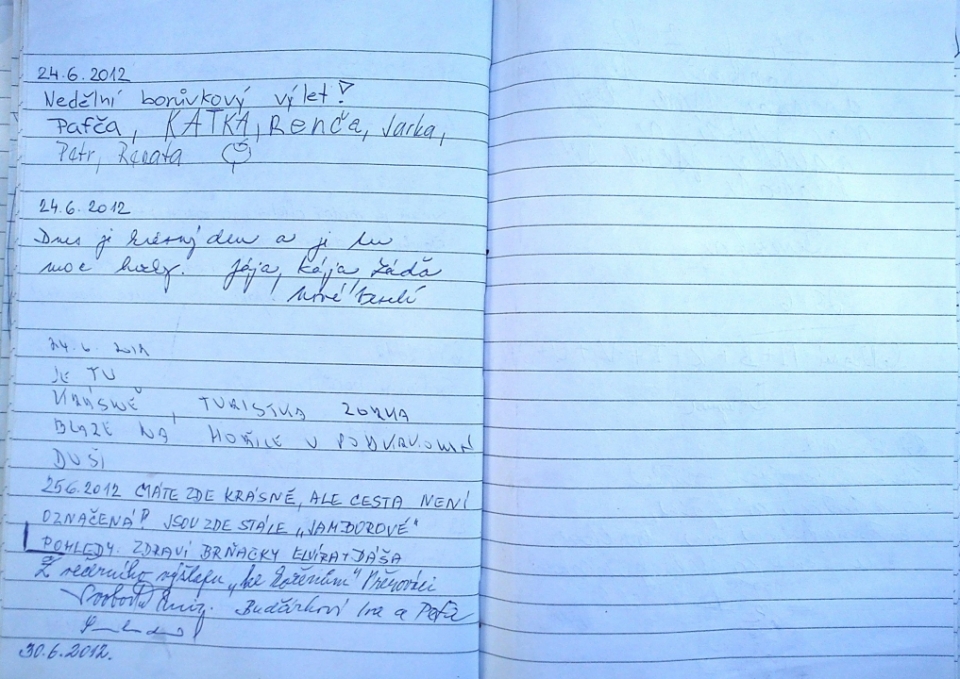 24.6.2012
Nedělní borůvkový výlet!
Pafča, KATKA, Renča, Jarka,
Petr, Renata
24.6.2012
Dnes je krásný den a je tu
moc hezky. Jája, Kája, Láďa
24.6. 2012
JE TU
KRÁSNĚ, TURISTKA ZORKA
BLAZE NA
DUŠI
25.6.2012 MÁTE ZDE KRÁSNĚ, ALE CESTA NENÍ
OZNAČENÁ! JSOU ZDE STÁLE „JAMBOROVÉ"
POHLEDY. ZDRAVÍ BRŇAČKY ELVÍRA + DÁŠA
Z večerního výšlapu „ke kořenům"
Budčárkovi Iva a Pafa
30.6.2012.